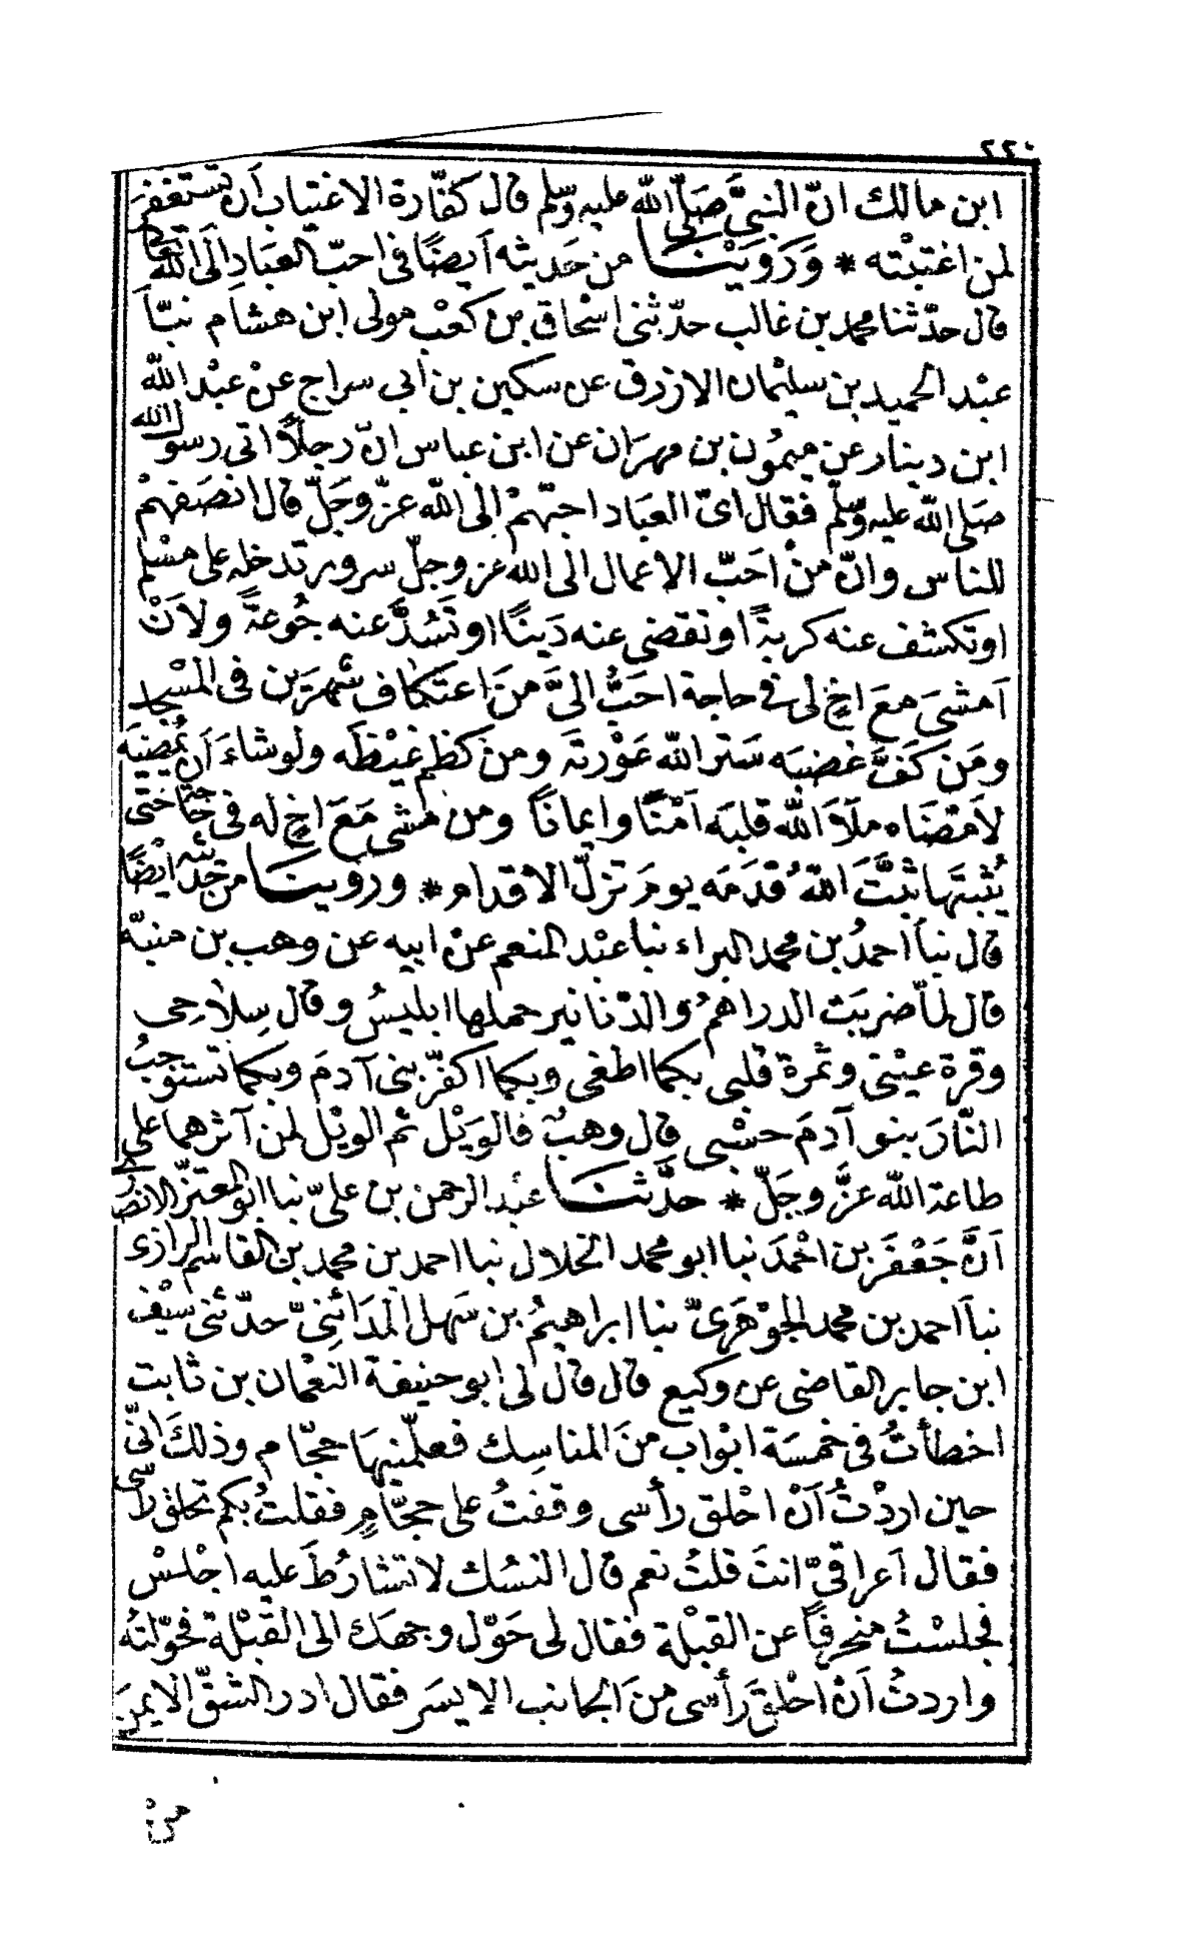 ٢٢٠
ابن مالك انّ النبىَّ صَلّى الله عليه وسلم قال كفّارة الاغتياب أن تستغفرَ
لمن اغتبْته * وَرَوَيْنا من حَديثه اَيضًا فى احبّ العبَادِ اِلَى الله تعالى
قال حدّثنا محمد بن غالب حدّثنى اسْحاق بن كعْب مولى ابن هشام نبّأ
عبْد الحميد بن سليْمان الازرق عن سكين بن أبى سراج عنْ عبْد الله
ابن دينار عن ميمُون بن مهرَان عن ابن عباس انّ رجلًا اتى رسول الله
صَلى الله عليه وسلم فقال اىّ العبَاد احبّهمْ اِلى الله عزّ وجَلّ قال انصَفهمْ
للناس وانّ منْ احَبّ الاعمال الى الله عز وجلّ سرور تدخله على مسْلم
او تكشف عنه كربةً او تقضى عنه دَينًا او تَسُدَّ عنه جُوعَةً ولاَنْ
اَمشىَ معَ اخٍ لى فى حاجة احَبُّ اِلىَّ منَ اعتكاف شهرَين فى المسْجد
ومَن كَفَّ غضبَه سَتر الله عَوْرته ومن كظم غيْظَه ولو شاءَ أن يمُضيَه
لاَمضَاه ملَأَ الله قلبَه اَمْنًا وايمانًا ومن مشى مَعَ اخٍ له فى حَاجَة حتى
يُثبتَها ثبَّتَ اللهُ قدَمَه يومَ تزلّ الاقدام * وروينا من حديثه أيضًا
قال نبأ احمدُ بن محمد البراء نبأ عبْد المنعم عنْ ابيه عن وهب بن منبّه
قال لمّا ضربَت الدراهمُ والدّنانير حملها ابليسُ وقال سِلاحى
وقرة عيْنى وثمرة قلبى بكما اطغى وبكما اكفّر بنى آدمَ وبكما تستوجبُ
النّارَ بنو آدمَ حسْبى قال وهبٌ فالوَيْل ثم الويْل لمن آثرهما على
طاعة الله عزَّ وجَلّ * حدَّثنا عبْد الرحمن بن علىّ نبا ابو المعتزّ الانصارى
اَنَّ جَعْفَر بن احْمَد نبا ابو محمد الخلال نبا احمد بن محمد بن القاسم الرازى
نبأ احمد بن محمد الجوْهَرىّ نبا ابراهيمُ بن سَهل المَدَائنِىّ حدّثنى سيْف
ابن جابر القاضى عن وكيع قال قال لى ابو حنيفة النعْمان بن ثابت
اخطأتُ فى خمسَة ابْواب منَ المناسِك فعلّمنيهَا حجّام وذلكَ انّى
حين اردْتُ اَنْ احْلق رأسى وقفتُ على حجّامٍ فقلتُ بكم تحلق رأسى
فقال اَعراقىّ انتَ قلتُ نعم قال النسُك لا تشارُطَ عليه اجْلسْ
فجلسْتُ منحرفًا عن القبْلة فقال لى حَوّل وجهَك الى القبْلة فحوّلتُه
واردتُ اَنْ احْلقَ رأسى منَ الجانب الايسَر فقال ادر الشقّ الايمنَ
منْ